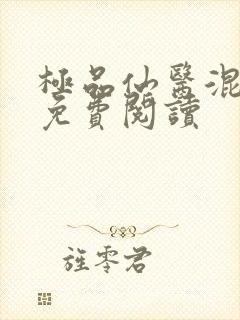 極品仙醫混
免費閱讀
旌零君